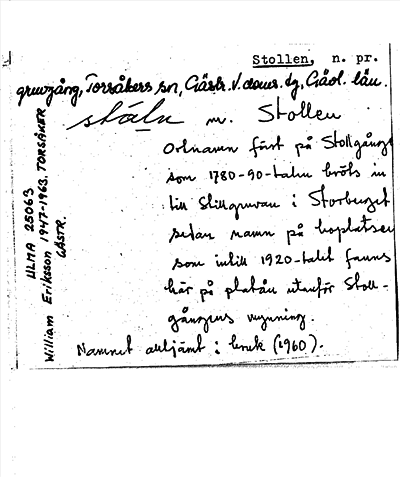 Stollen, n. pr.
gruvgång, Torsåkers sn, Gästr. V. doms. dg, Gävl. län.
stóln m. Stollen
Ortnamn först på Stollgången
som 1780-90-talen bröts in
till Stillgruvan i Storberget
sedan namn på boplatsen
som intill 1920-talet fanns
här på platån utanför Stoll-
gångens mynning.
Namnet alltjämt i bruk (1960).
ULMA 25063
William Eriksson 1947-1963. TORSÅKER
GÄSTR.